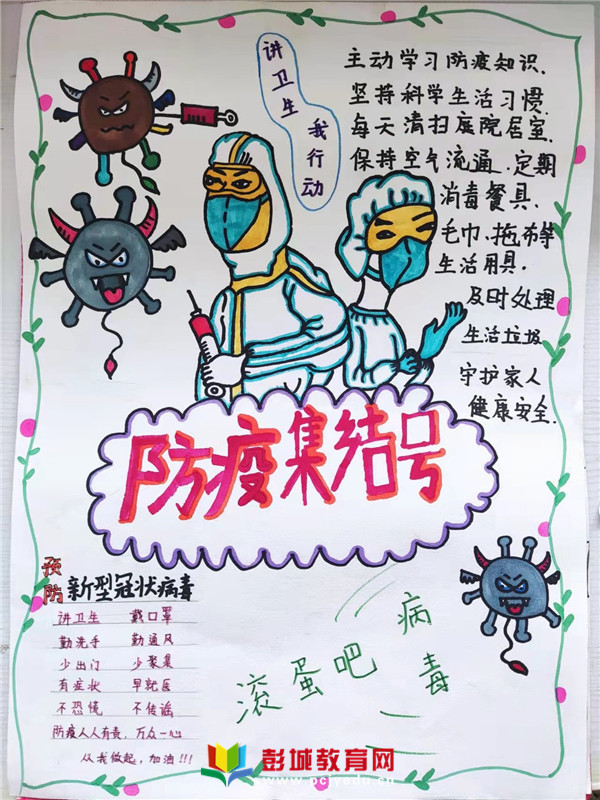 讲卫生
我行动
主动学习防疫知识.
坚持科学生活习惯.
每天清扫庭院居室.
保持空气流通、定期
消毒餐具.
毛巾、拖布等
生活用具.
及时处理
生活垃圾
守护家人
健康安全.
防疫集结号
预防
新型冠状病毒
讲卫生 戴口罩
勤洗手 勤通风
少出门 少聚集
有症状 早就医
不恐慌 不传谣
防疫人人有责，万众一心
从我做起，加油!!!
滚蛋吧
病毒
彭城教育网
www.pcjyadu.cn